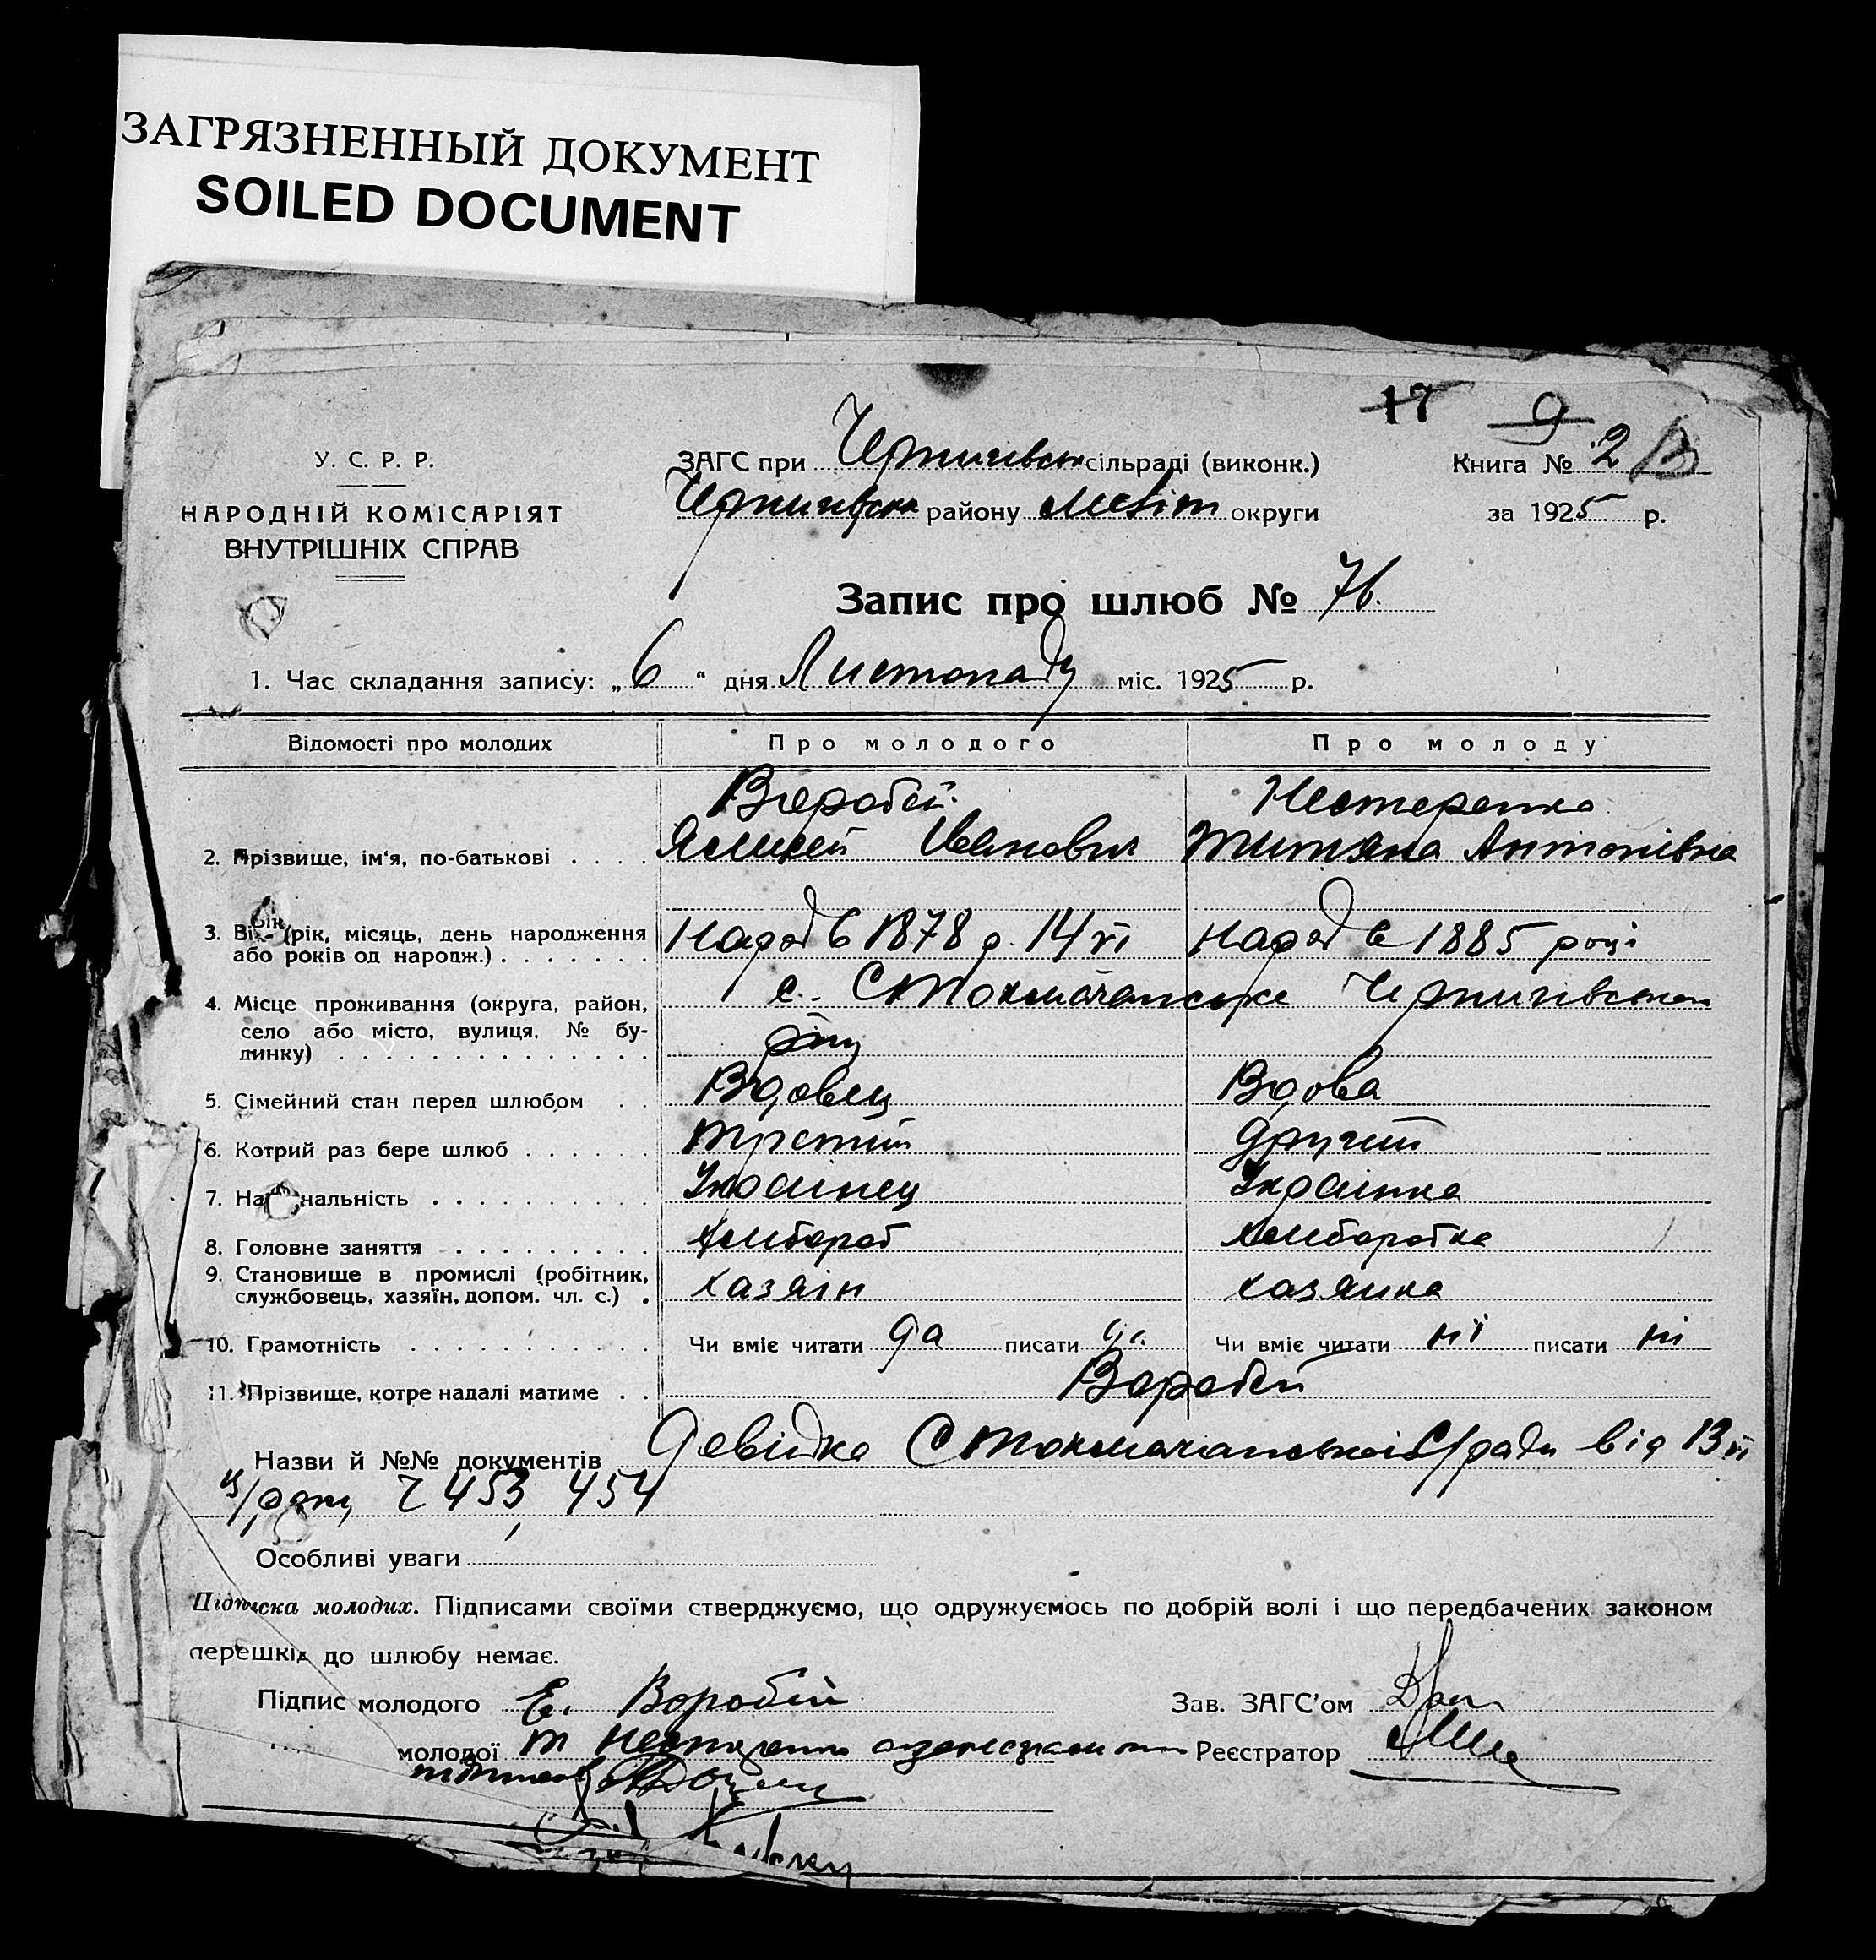 ЗАГРЯЗНЕННЫЙ ДОКУМЕНТ
SOILED DOCUMENT
17 9
У. С. Р. Р.
НАРОДНІЙ КОМІСАРІЯТ
ВНУТРІШНІХ СПРАВ
ЗАГС при Чернигівськ сільраді (виконк.)
Чернигівськ району Меліт округи
Книга № 2
за 1925 р.
Запис про шлюб № 76.
1. Час складання запису: „6" дня Листопаду міс. 1925 р.
Відомості про молодих Про молодого Про молоду
Воробей Нестеренко
2. Прізвище, ім'я, по-батькові . . . . Иванович Титяна Антонівна
3. Вік (рік, місяць, день народження Народ в 1878 р. 14/VI Народ в 1885 році
або років од народж.) . . . . . . .
4. Місце проживання (округа, район, с. СТокмачанське Чернигівського
село або місто, вулиця, № бу- р-ну
динку) . . . . . . . . . . . . . .
5. Сімейний стан перед шлюбом . . Вдовец Вдова
6. Котрий раз бере шлюб . . . . . . третий другий
7. Національність . . . . . . . . Украінец Украінка
8. Головне заняття . . . . . . . . . хлибороб хлиборобка
9. Становище в промислі (робітник, хазяін хазяика
службовець, хазяїн, допом. чл. с.) .
10. Грамотність . . . . . . . . . . . Чи вміє читати да писати да Чи вміє читати ні писати ні
11. Прізвище, котре надалі матиме . . Воробей
Назви й №№ документів Довідка СТокмачанськоі С/ради від 13/VI
ц/року 453, 454
Особливі уваги
Підписка молодих. Підписами своїми стверджуємо, що одружуємось по добрій волі і що передбачених законом
перешкід до шлюбу немає.
Підпис молодого Е. Воробій Зав. ЗАГС'ом
молодої т Нестеренко Реєстратор